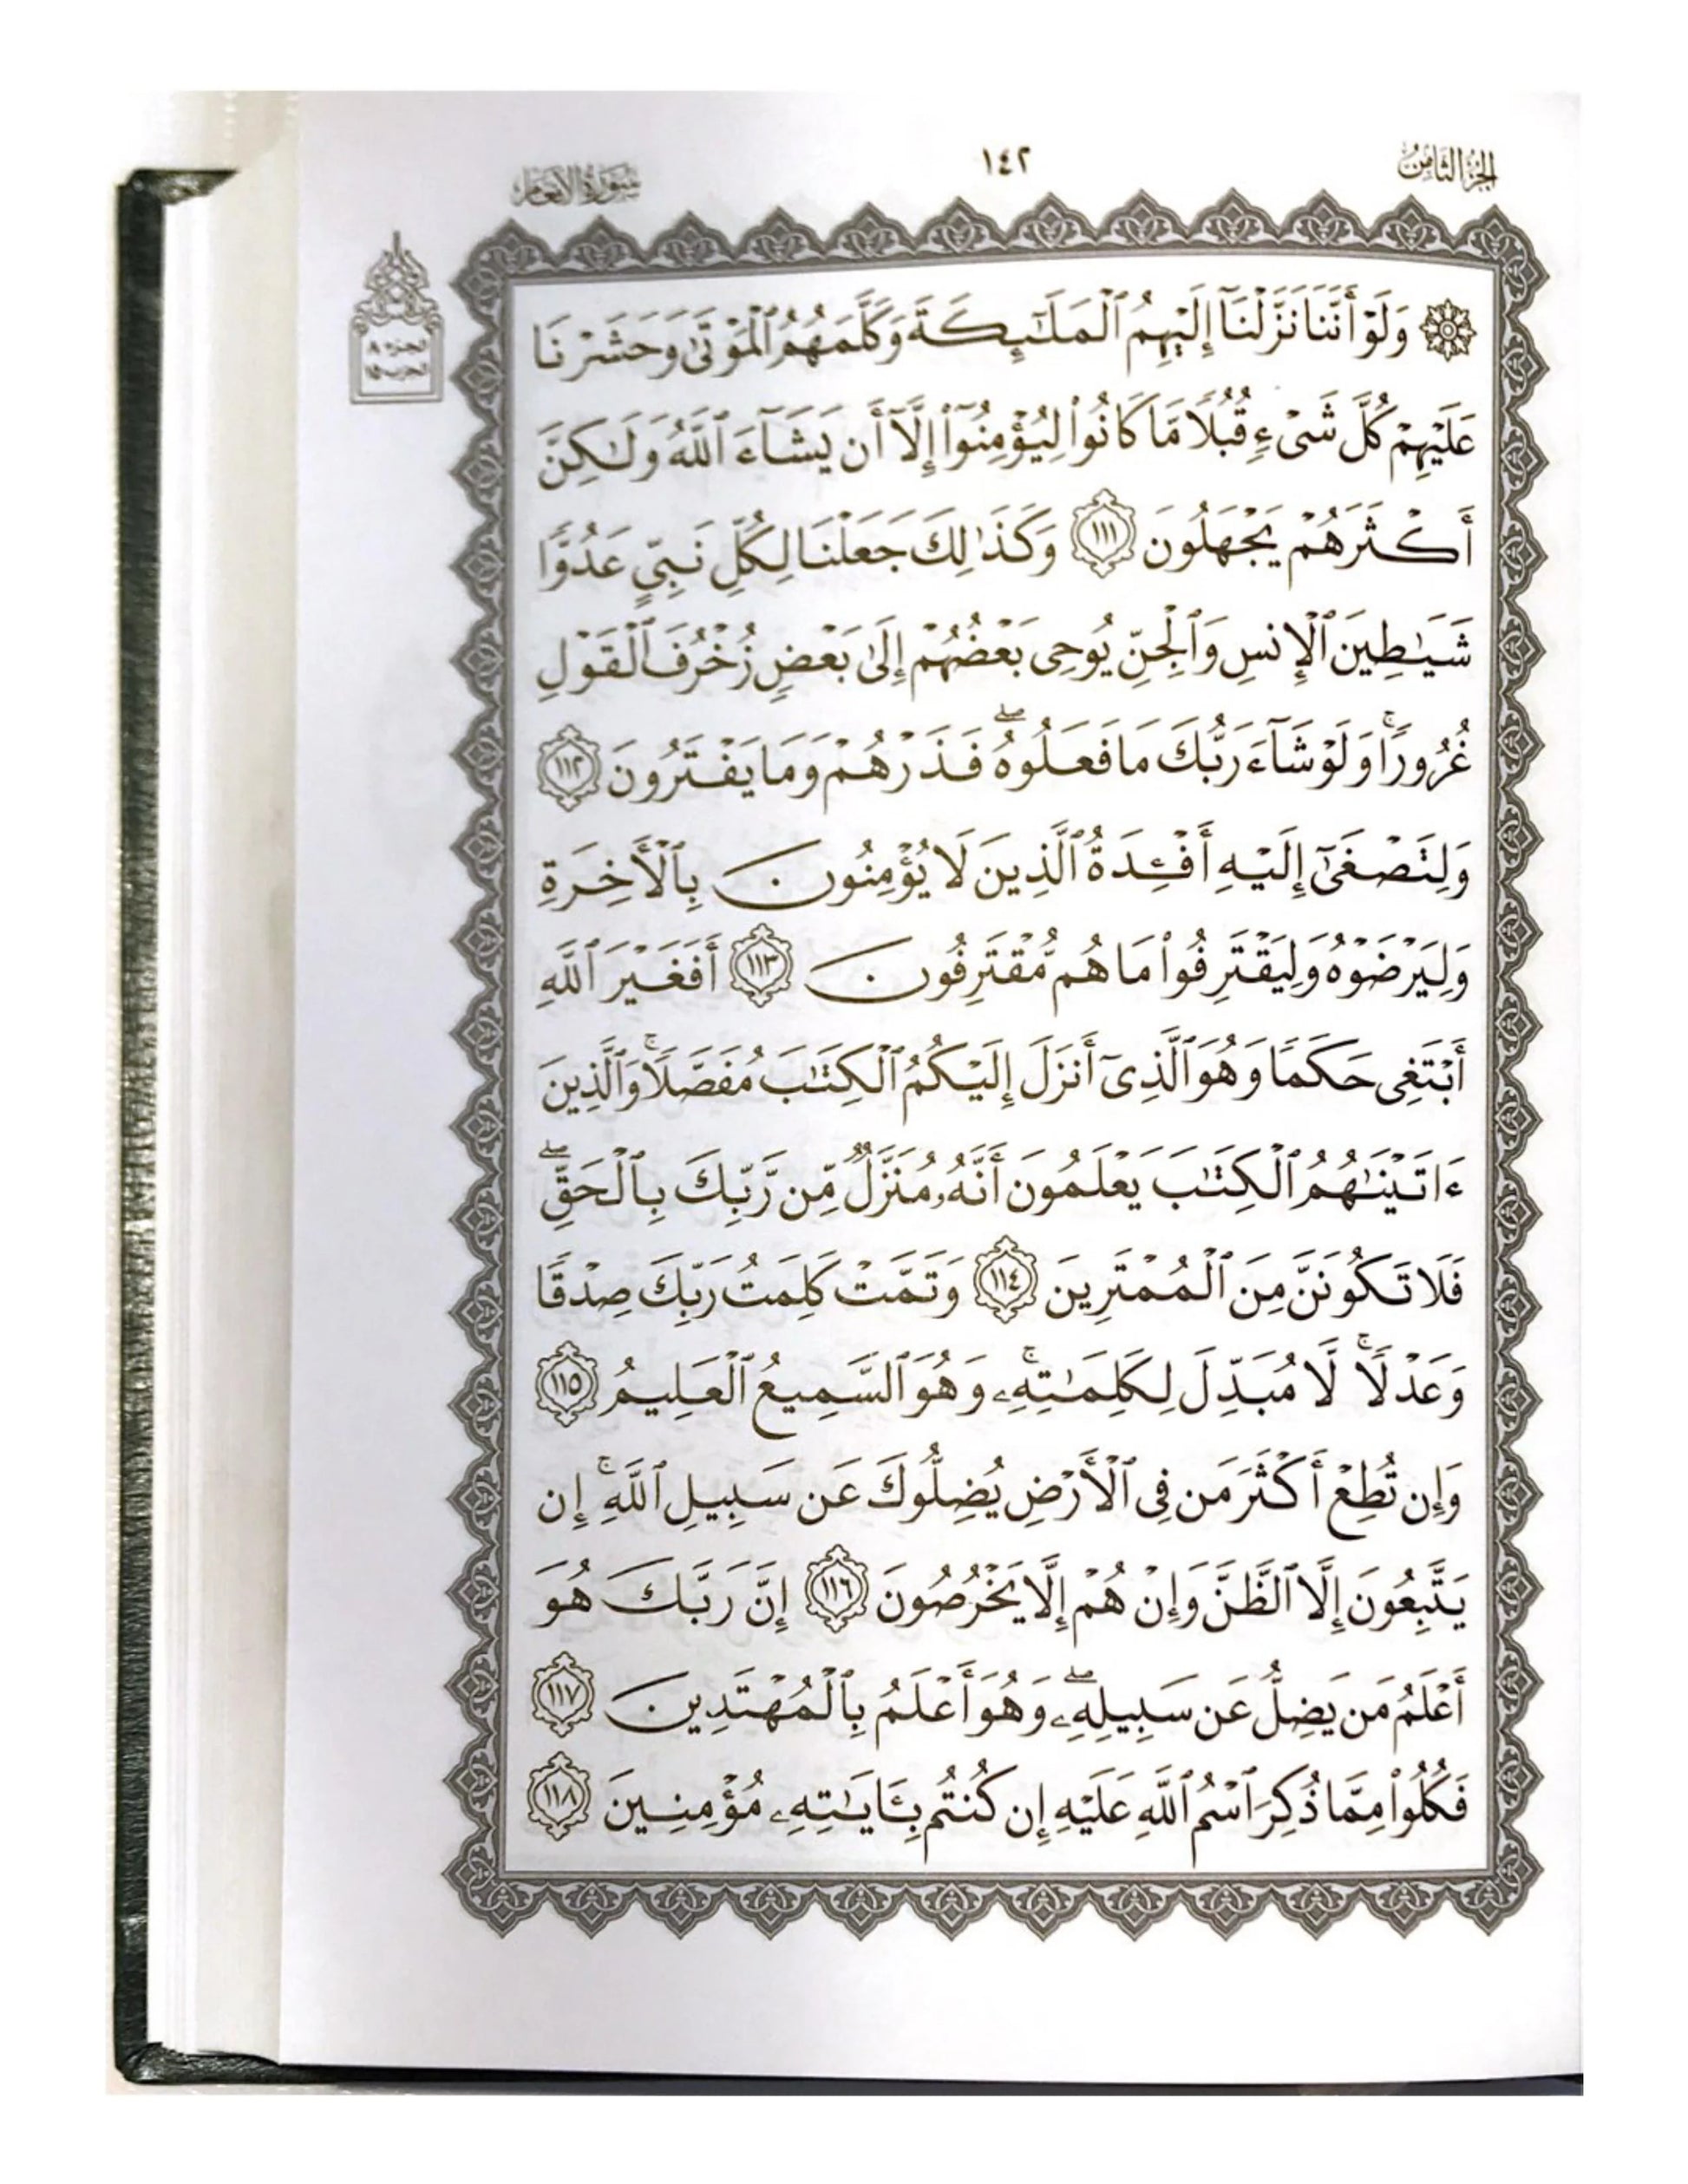 الجزء الثامن
١٤٢
سورة الأنعام
الجزء ٨
الحزب ١٥
۞ وَلَوْ أَنَّنَا نَزَّلْنَآ إِلَيْهِمُ ٱلْمَلَـٰٓئِكَةَ وَكَلَّمَهُمُ ٱلْمَوْتَىٰ وَحَشَرْنَا
عَلَيْهِمْ كُلَّ شَىْءٍ قُبُلًا مَّا كَانُوا۟ لِيُؤْمِنُوٓا۟ إِلَّآ أَن يَشَآءَ ٱللَّهُ وَلَـٰكِنَّ
أَكْثَرَهُمْ يَجْهَلُونَ ١١١ وَكَذَٰلِكَ جَعَلْنَا لِكُلِّ نَبِىٍّ عَدُوًّا
شَيَـٰطِينَ ٱلْإِنسِ وَٱلْجِنِّ يُوحِى بَعْضُهُمْ إِلَىٰ بَعْضٍ زُخْرُفَ ٱلْقَوْلِ
غُرُورًا ۚ وَلَوْ شَآءَ رَبُّكَ مَا فَعَلُوهُ ۖ فَذَرْهُمْ وَمَا يَفْتَرُونَ ١١٢
وَلِتَصْغَىٰٓ إِلَيْهِ أَفْـِٔدَةُ ٱلَّذِينَ لَا يُؤْمِنُونَ بِٱلْـَٔاخِرَةِ
وَلِيَرْضَوْهُ وَلِيَقْتَرِفُوا۟ مَا هُم مُّقْتَرِفُونَ ١١٣ أَفَغَيْرَ ٱللَّهِ
أَبْتَغِى حَكَمًا وَهُوَ ٱلَّذِىٓ أَنزَلَ إِلَيْكُمُ ٱلْكِتَـٰبَ مُفَصَّلًا ۚ وَٱلَّذِينَ
ءَاتَيْنَـٰهُمُ ٱلْكِتَـٰبَ يَعْلَمُونَ أَنَّهُۥ مُنَزَّلٌ مِّن رَّبِّكَ بِٱلْحَقِّ ۖ
فَلَا تَكُونَنَّ مِنَ ٱلْمُمْتَرِينَ ١١٤ وَتَمَّتْ كَلِمَتُ رَبِّكَ صِدْقًا
وَعَدْلًا ۚ لَّا مُبَدِّلَ لِكَلِمَـٰتِهِۦ ۚ وَهُوَ ٱلسَّمِيعُ ٱلْعَلِيمُ ١١٥
وَإِن تُطِعْ أَكْثَرَ مَن فِى ٱلْأَرْضِ يُضِلُّوكَ عَن سَبِيلِ ٱللَّهِ ۚ إِن
يَتَّبِعُونَ إِلَّا ٱلظَّنَّ وَإِنْ هُمْ إِلَّا يَخْرُصُونَ ١١٦ إِنَّ رَبَّكَ هُوَ
أَعْلَمُ مَن يَضِلُّ عَن سَبِيلِهِۦ ۖ وَهُوَ أَعْلَمُ بِٱلْمُهْتَدِينَ ١١٧
فَكُلُوا۟ مِمَّا ذُكِرَ ٱسْمُ ٱللَّهِ عَلَيْهِ إِن كُنتُم بِـَٔايَـٰتِهِۦ مُؤْمِنِينَ ١١٨